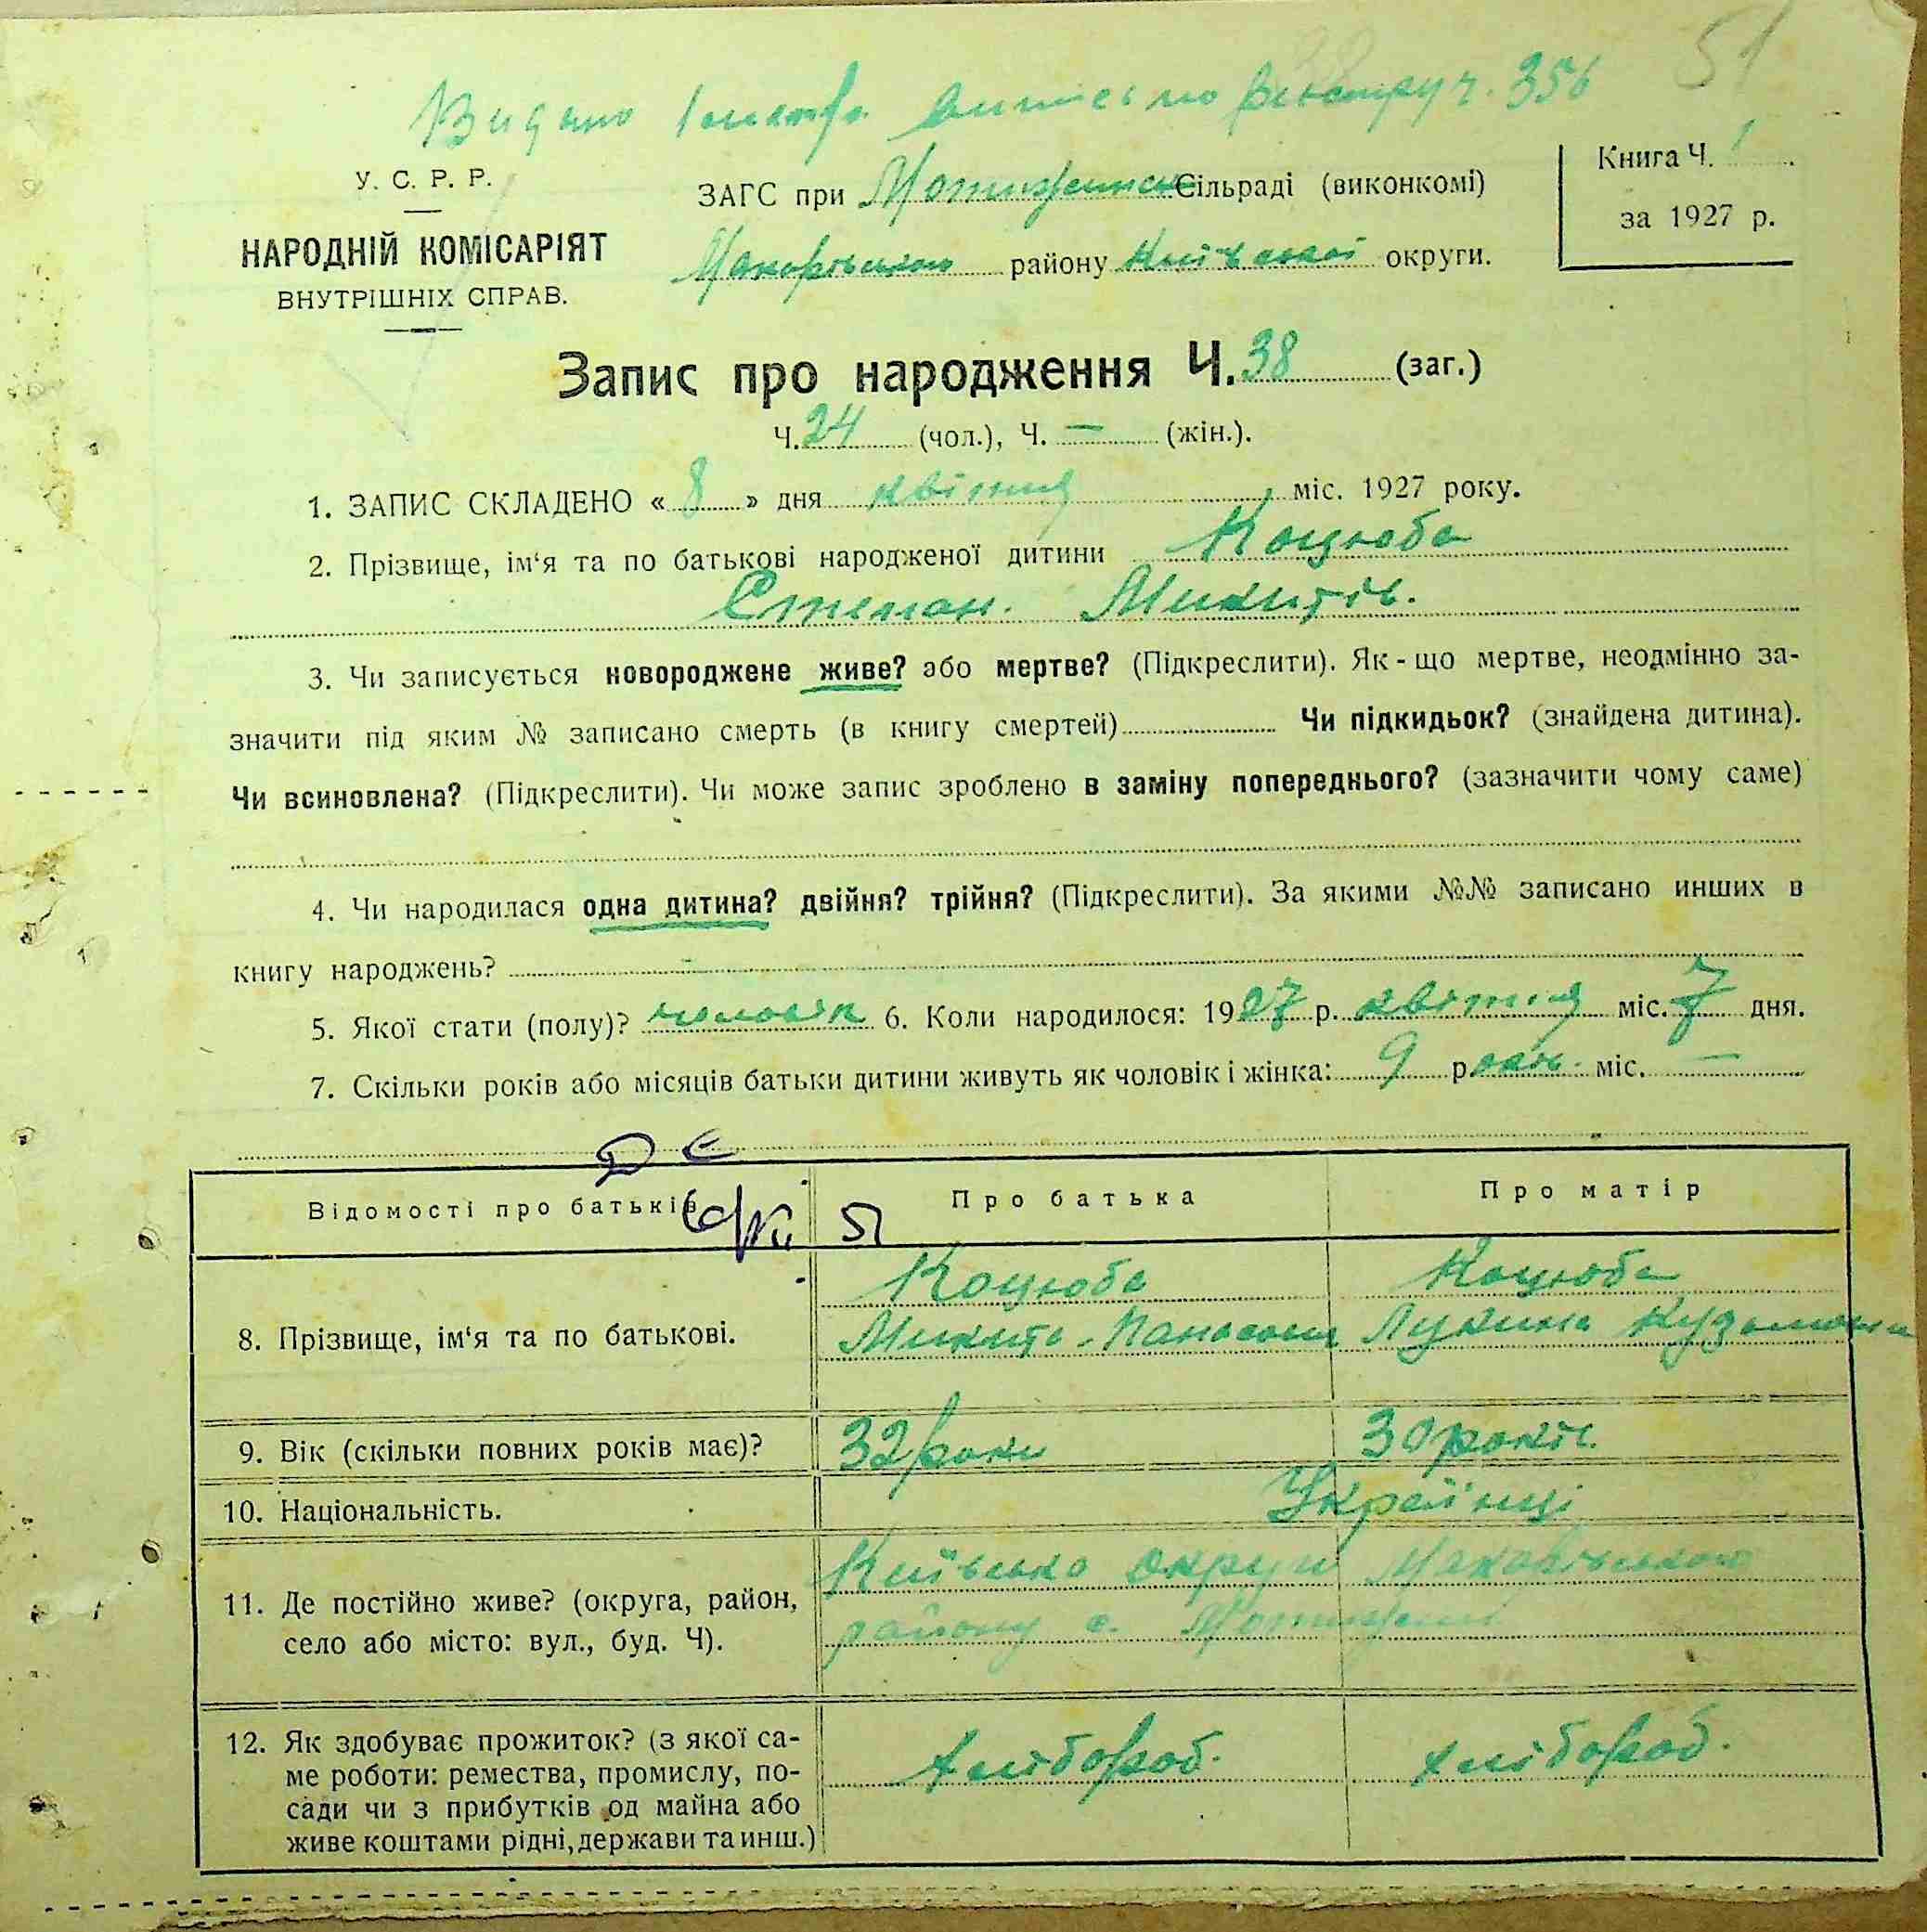 51
Видано витяг по реєстру ч. 356
У. С. Р. Р.
НАРОДНІЙ КОМІСАРІЯТ
ВНУТРІШНІХ СПРАВ.
ЗАГС при Мотижинськ Сільраді (виконкомі)
Макарівського району Київської округи.
Книга Ч. 1
за 1927 р.
Запис про народження Ч. 38 (заг.)
Ч. 24 (чол.), Ч. — (жін.).
1. ЗАПИС СКЛАДЕНО « 8 » дня квітня міс. 1927 року.
2. Прізвище, ім'я та по батькові народженої дитини Коцюба
Степан. Микитів.
3. Чи записується новороджене живе? або мертве? (Підкреслити). Як-що мертве, неодмінно за-
значити під яким № записано смерть (в книгу смертей) Чи підкидьок? (знайдена дитина).
Чи всиновлена? (Підкреслити). Чи може запис зроблено в заміну попереднього? (зазначити чому саме)
4. Чи народилася одна дитина? двійня? трійня? (Підкреслити). За якими №№ записано инших в
книгу народжень? —
5. Якої стати (полу)? чоловік 6. Коли народилося: 1927 р. квітня міс. 7 дня.
7. Скільки років або місяців батьки дитини живуть як чоловік і жінка: 9 років. міс. —
Відомості про батьків
Про батька
Про матір
8. Прізвище, ім'я та по батькові.
Коцюба
Микита Панасови
Коцюба
Лукина
9. Вік (скільки повних років має)?
32 роки
30 років.
10. Національність.
Українці
11. Де постійно живе? (округа, район,
село або місто: вул., буд. Ч).
Київсько округи Макарівського
району с. Мотижині
12. Як здобуває прожиток? (з якої са-
ме роботи: ремества, промислу, по-
сади чи з прибутків од майна або
живе коштами рідні, держави та инш.)
Хлібороб.
Хлібороб.